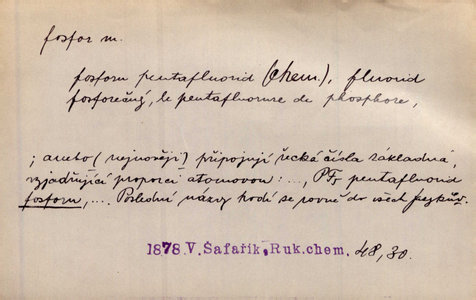 fosfor m.
fosforu pentafluorid (chem.), fluorid
fosforečný, le pentafluorure de phosphore,
; anebo (nejnověji) připojují řecká čísla základná,
vyjadřující proporci atomovou: ..., PF5 pentafluorid
fosforu, ... Poslední názvy hodí se rovně do všech jazyků.
1878. V. Šafařík, Ruk. chem. 48, 30.